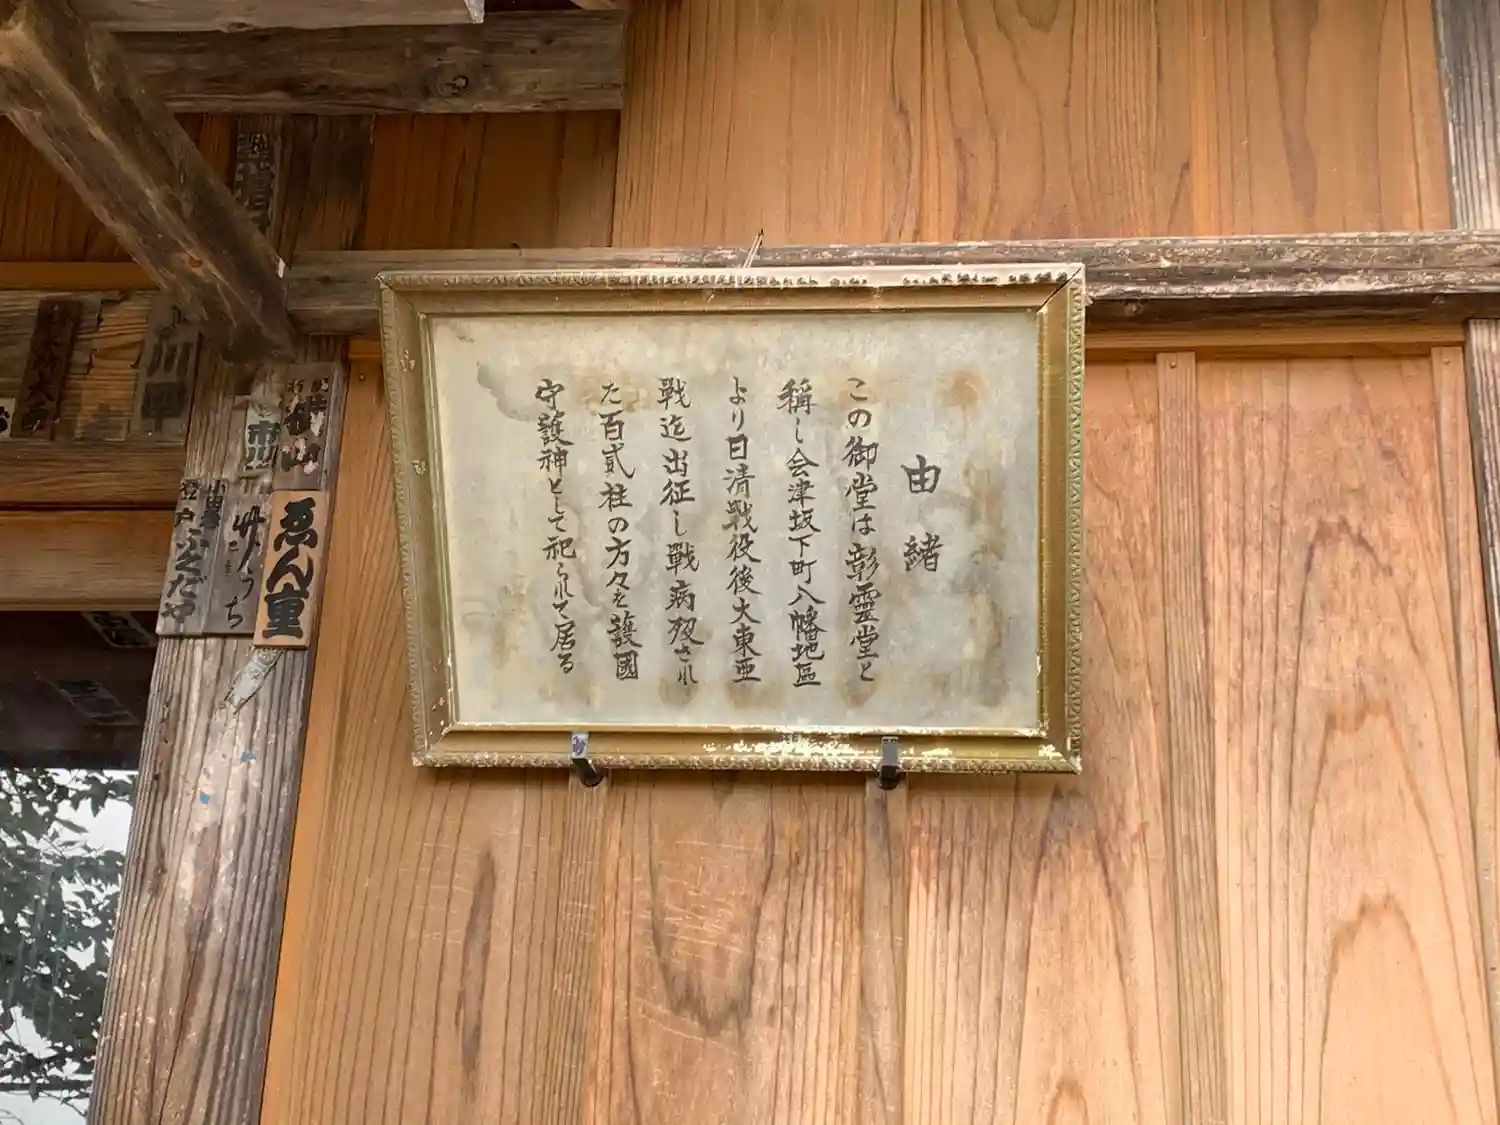 由緒
この御堂は彰霊堂と
稱し会津坂下町八幡地區
より日清戦役後大東亜
戰迄出征し戰病歿され
た百貳柱の方々を護國
守護神として祀られて居る
市川
ゑん重
ふくだや